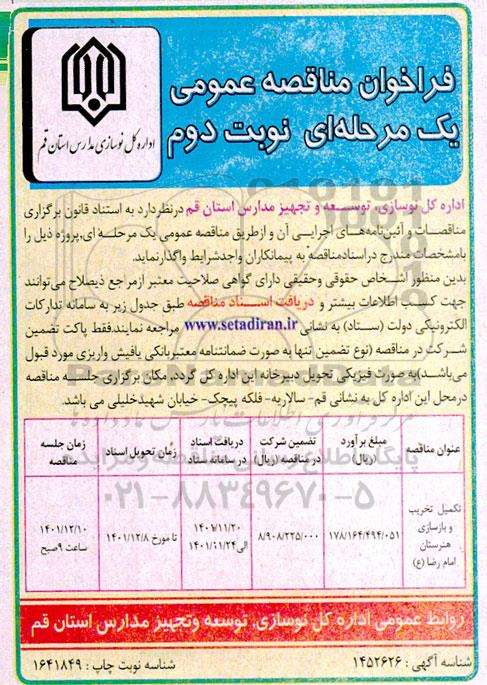 فراخوان مناقصه عمومی
یک مرحله‌ای نوبت دوم
اداره کل نوسازی مدارس استان قم
اداره کل نوسازی، توسعه و تجهیز مدارس استان قم درنظر دارد به استناد قانون برگزاری
مناقصات و آئین‌نامه‌های اجرایی آن و ازطریق مناقصه عمومی یک مرحله ای،پروژه ذیل را
بامشخصات مندرج دراسنادمناقصه به پیمانکاران واجدشرایط واگذارنماید.
بدین منظور اشخاص حقوقی وحقیقی دارای گواهی صلاحیت معتبر ازمرجع ذیصلاح می‌توانند
جهت کسب اطلاعات بیشتر و دریافت اسناد مناقصه طبق جدول زیر به سامانه تدارکات
الکترونیکی دولت (ستاد) به نشانی www.setadiran.ir مراجعه نمایند.فقط پاکت تضمین
شرکت در مناقصه (نوع تضمین تنها به صورت ضمانتنامه معتبربانکی یافیش واریزی مورد قبول
می‌باشد)به صورت فیزیکی تحویل دبیرخانه این اداره کل گردد. مکان برگزاری جلسه مناقصه
درمحل این اداره کل به نشانی قم- سالاریه- فلکه پیچک- خیابان شهیدخلیلی می باشد.
عنوان مناقصه
مبلغ برآورد (ریال)
تضمین شرکت در مناقصه (ریال)
دریافت اسناد در سامانه ستاد
زمان تحویل اسناد
زمان جلسه مناقصه
تکمیل تخریب و بازسازی هنرستان امام رضا (ع)
۱۷۸/۱۶۴/۴۹۴/۰۵۱
۸/۹۰۸/۲۲۵/۰۰۰
۱۴۰۱/۱۱/۲۰ الی ۱۴۰۱/۱۱/۲۴
تا مورخ ۱۴۰۱/۱۲/۸
۱۴۰۱/۱۲/۱۰ ساعت ۹صبح
۰۲۱-۸۸۳۴۹۶۷۰-۵
روابط عمومی اداره کل نوسازی، توسعه وتجهیز مدارس استان قم
شناسه آگهی : ۱۴۵۲۶۲۶
شناسه نوبت چاپ : ۱۶۴۱۸۴۹